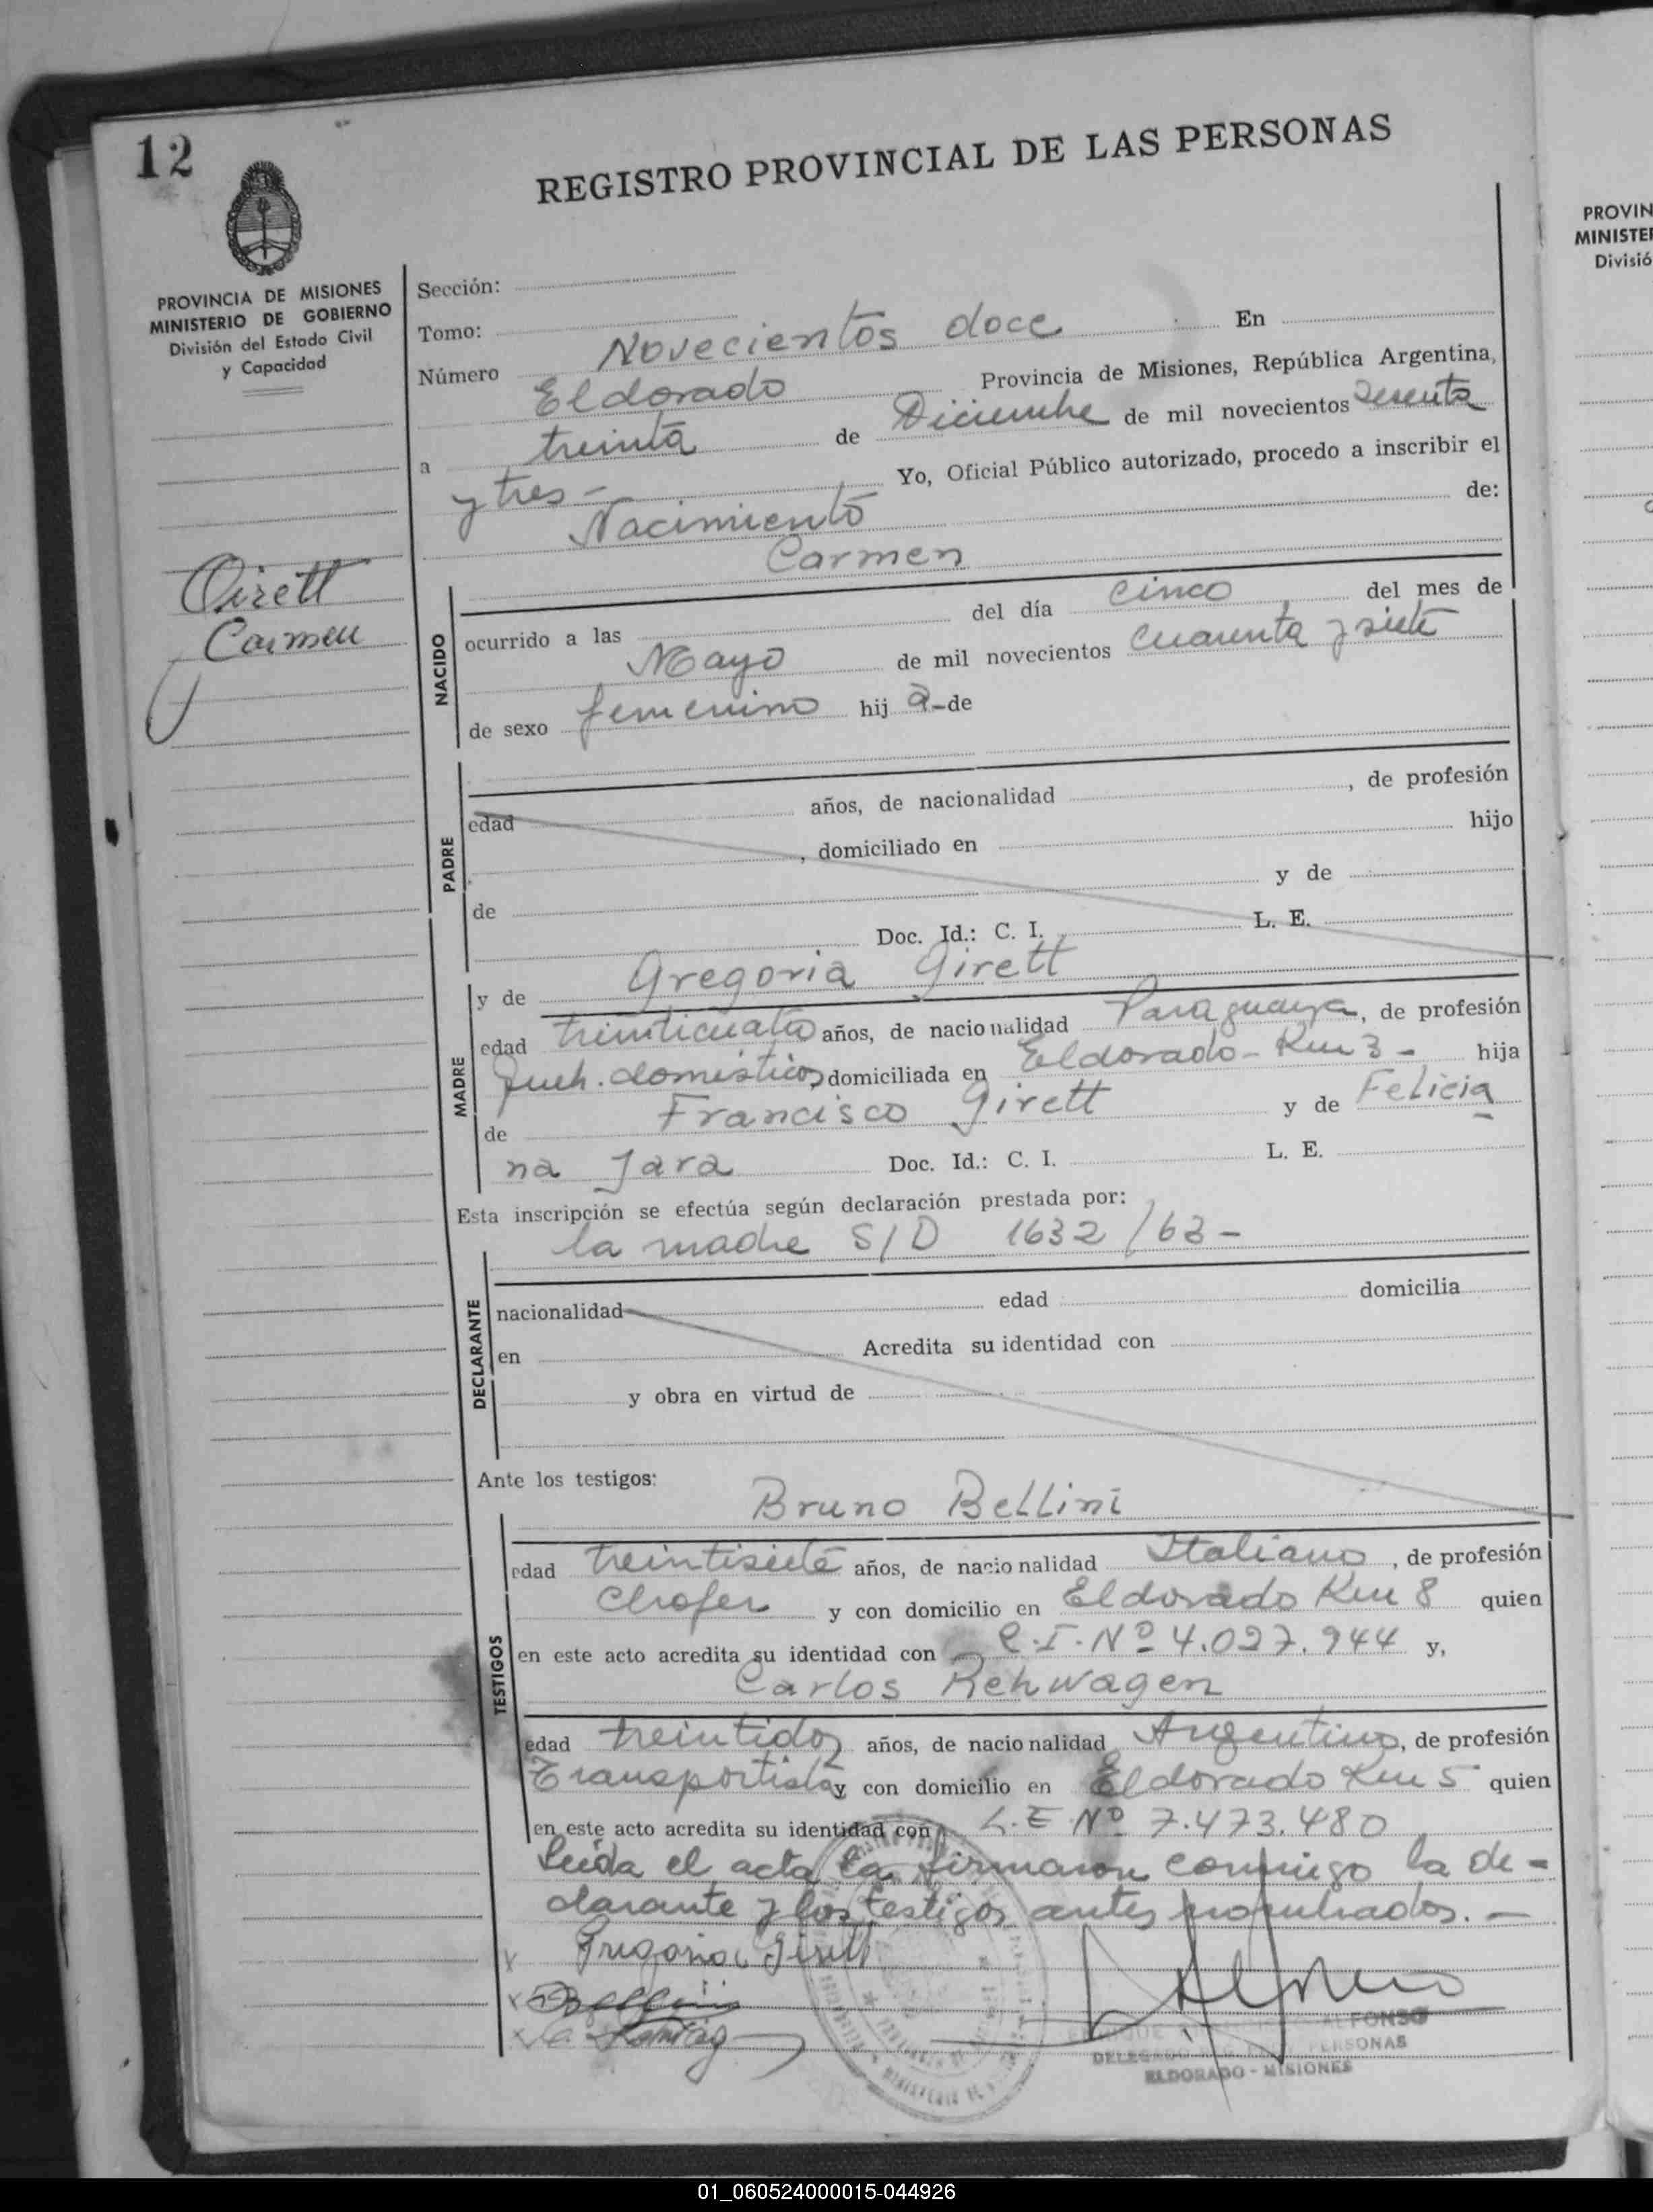 12
REGISTRO PROVINCIAL DE LAS PERSONAS
PROVINCIA DE MISIONES
MINISTERIO DE GOBIERNO
División del Estado Civil
y Capacidad
Sección:
Tomo:
Número Novecientos doce En
Eldorado Provincia de Misiones, República Argentina,
a treinta de Diciembre de mil novecientos sesenta
y tres - Yo, Oficial Público autorizado, procedo a inscribir el
Nacimiento de:
Carmen
Girett
Carmen
NACIDO
ocurrido a las del día cinco del mes de
Mayo de mil novecientos cuarenta y siete
de sexo femenino hij a-de
PADRE
edad años, de nacionalidad , de profesión
, domiciliado en hijo
de y de
Doc. Id.: C. I. L. E.
y de Gregoria Girett
MADRE
edad treinticuatro años, de nacionalidad Paraguaya, de profesión
Queh. domésticos, domiciliada en Eldorado - Km 3 - hija
de Francisco Girett y de Felicia
na Jara Doc. Id.: C. I. L. E.
Esta inscripción se efectúa según declaración prestada por:
la madre S/D 1632/63-
DECLARANTE
nacionalidad edad domicilia
en Acredita su identidad con
y obra en virtud de
Ante los testigos:
Bruno Bellini
TESTIGOS
edad treintisiete años, de nacionalidad Italiano, de profesión
Chofer y con domicilio en Eldorado Km 8 quien
en este acto acredita su identidad con C.I. Nº 4.027.944 y,
Carlos Rehwagen
edad treintidos años, de nacionalidad Argentino, de profesión
Transportista y con domicilio en Eldorado Km 5 quien
en este acto acredita su identidad con L.E Nº 7.473.480
Leída el acta la firmaron conmigo la de-
clarante y los testigos antes nombrados. -
x Gregoria Girett
x Bellini
x
ALFONSO
PERSONAS
ELDORADO - MISIONES
PROVIN
MINISTER
Divisió
01_060524000015-044926